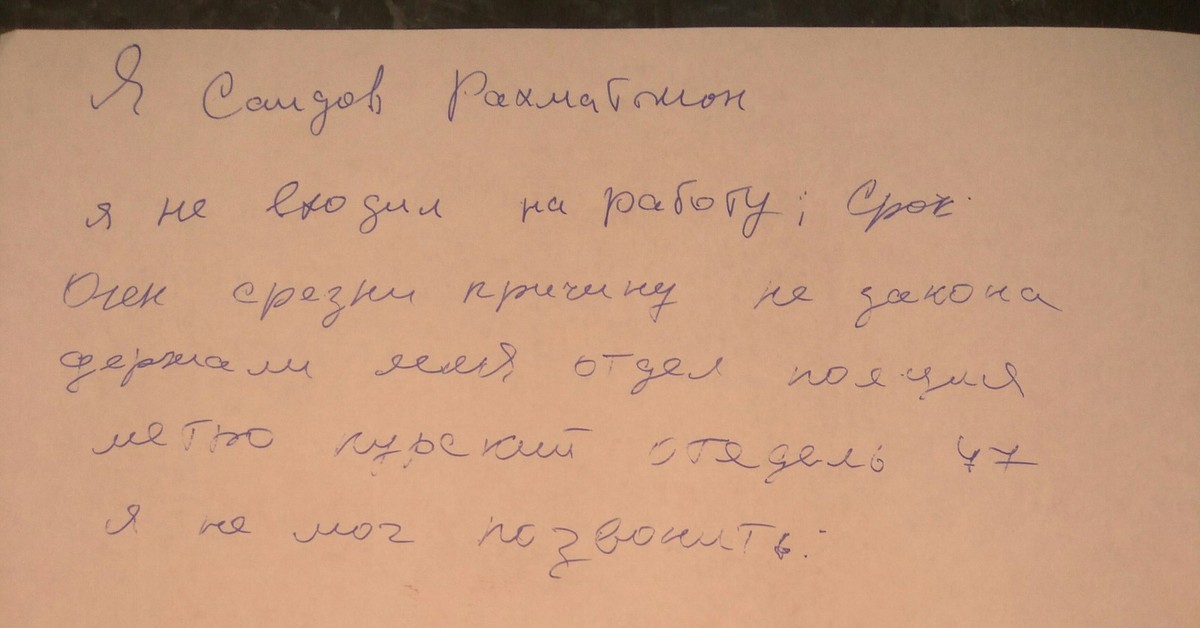 Я Саидов Рахматжон
я не входил на работу; Срок.
Очен срезни причину не закона
держали меня отдел полиция
метро курский отедель 47
я не мог позвонить.